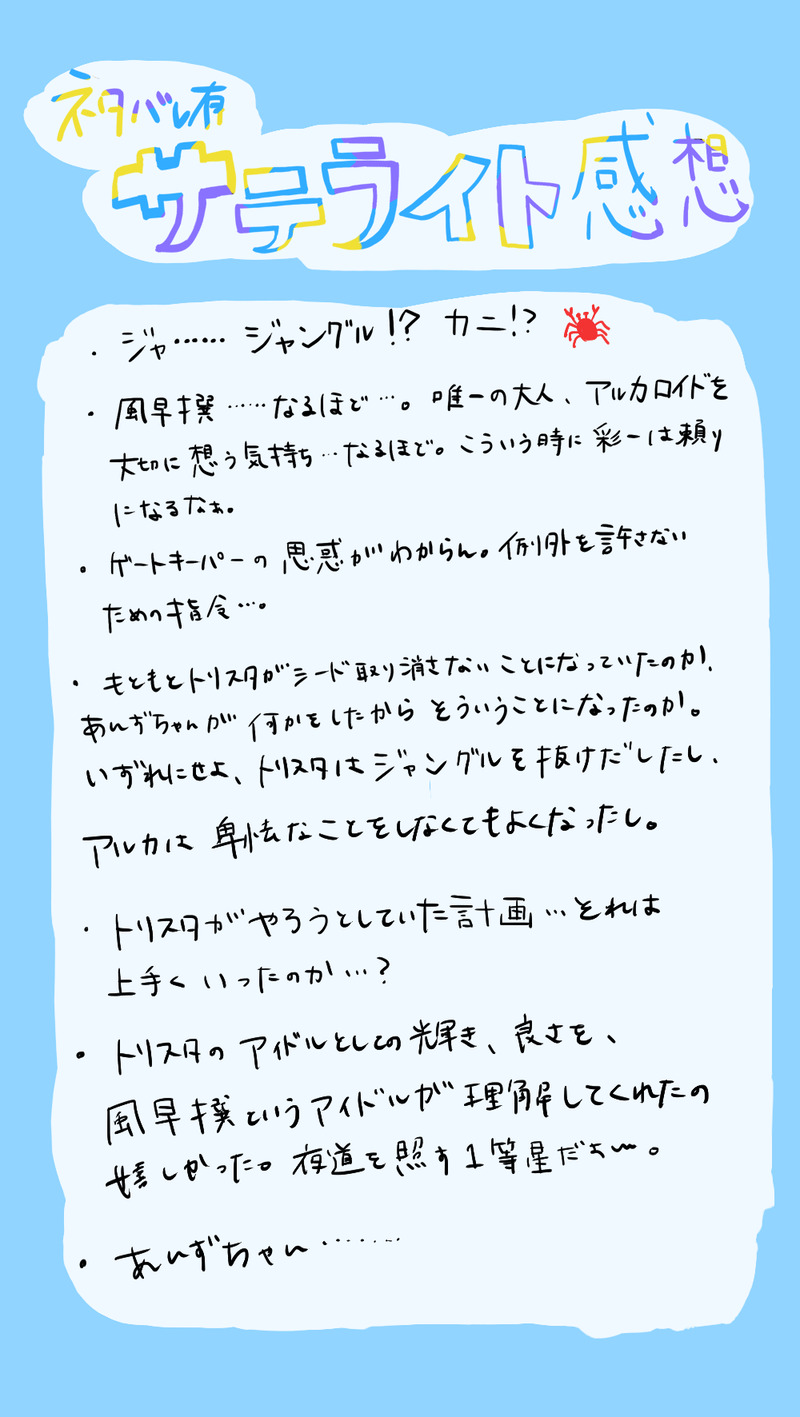 ネタバレ有
サテライト感想
・ジャ…… ジャングル!? カニ!?
・風早撰……なるほど…。唯一の大人、アルカロイドを
大切に想う気持ち…なるほど。こういう時に彩一は頼り
になるなぁ。
・ゲートキーパーの思惑がわからん。例外を許さない
ための指令…。
・もともとトリスタがシード取り消さないことになっていたのか、
あんずちゃんが何かをしたからそういうことになったのか。
いずれにせよ、トリスタはジャングルを抜けだしたし、
アルカは卑怯なことをしなくてもよくなったし。
・トリスタがやろうとしていた計画…それは
上手くいったのか…?
・トリスタのアイドルとしての輝き、良さを、
風早撰というアイドルが理解してくれたの
嬉しかった。夜道を照す1等星だぁ〜。
・あんずちゃん………